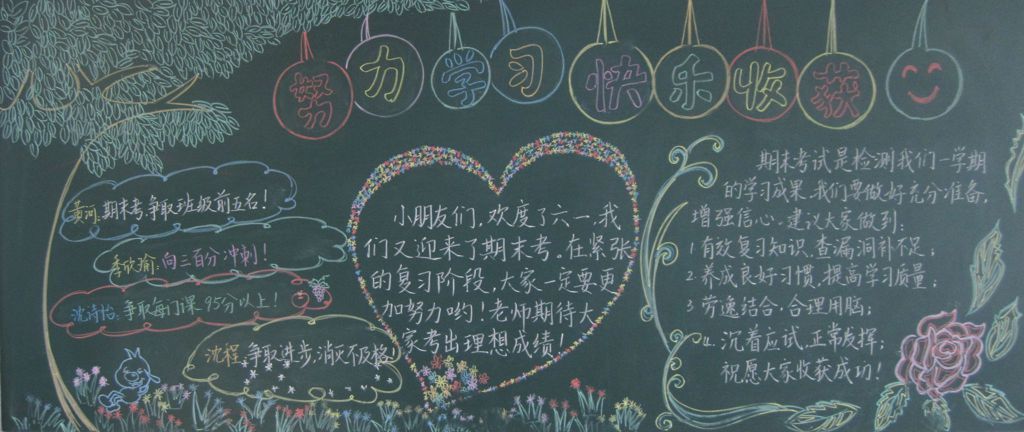 努力学习快乐收获
黄河:期末考争取班级前五名!
李欣瑜:向三百分冲刺!
沈诗怡:争取每门课95分以上!
沈程:争取进步,消灭不及格!
小朋友们,欢度了六一,我
们又迎来了期末考。在紧张
的复习阶段,大家一定要更
加努力哟!老师期待大
家考出理想成绩!
期末考试是检测我们一学期
的学习成果,我们要做好充分准备,
增强信心。建议大家做到:
1.有效复习知识,查漏洞补不足;
2.养成良好习惯,提高学习质量;
3.劳逸结合,合理用脑;
4.沉着应试,正常发挥;
祝愿大家收获成功!